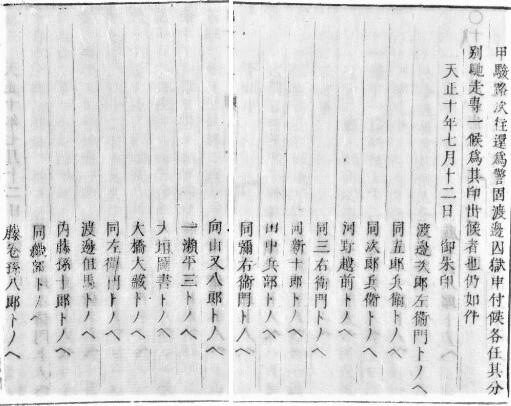 甲駿路次往還爲警固渡邊囚獄申付候各任其分
別馳走専一候爲其印出候者也仍如件
天正十年七月十二日 御朱印
渡邊次郎左衞門トノヘ
同五郎兵衞トノヘ
同次郎兵衞トノヘ
河野越前トノヘ
同三右衞門トノヘ
同新十郎トノヘ
田中兵部トノヘ
同彌右衞門トノヘ
向山又八郎トノヘ
一瀨平三トノヘ
大垣圖書トノヘ
大橋大藏トノヘ
同左衞門トノヘ
渡邊但馬トノヘ
内藤孫十郎トノヘ
同織部トノヘ
藤卷孫八郎トノヘ